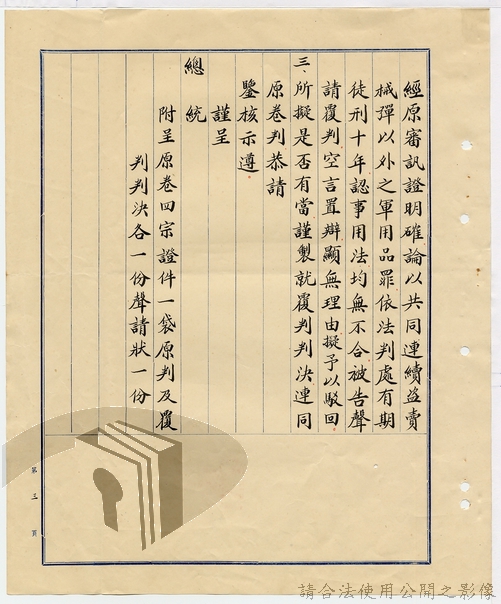 經原審訊證明確論以共同連續盜賣
械彈以外之軍用品罪依法判處有期
徒刑十年認事用法均無不合被告聲
請覆判空言置辯顯無理由擬予以駁回
三、所擬是否有當謹製就覆判判決連同
原卷判恭請
鑒核示遵
謹呈
總統
附呈原卷四宗證件一袋原判及覆
判判決各一份聲請狀一份
第三頁
請合法使用公開之影像